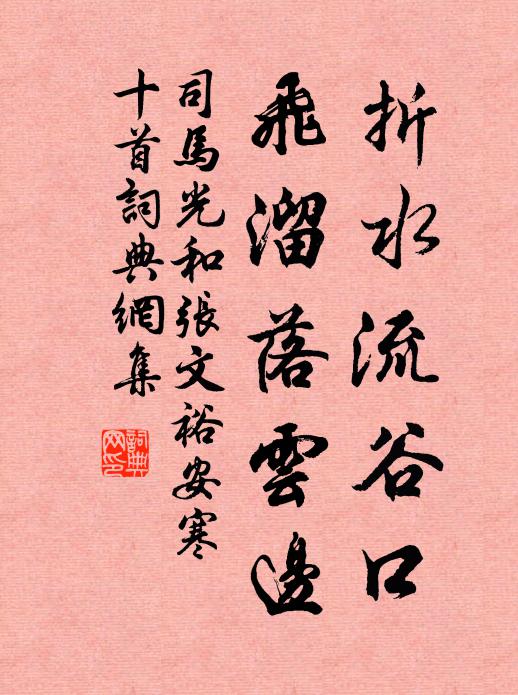 折水流谷口
飛溜落雲邊
司馬光和張文裕安寒
十首詞典網集
詞典網印